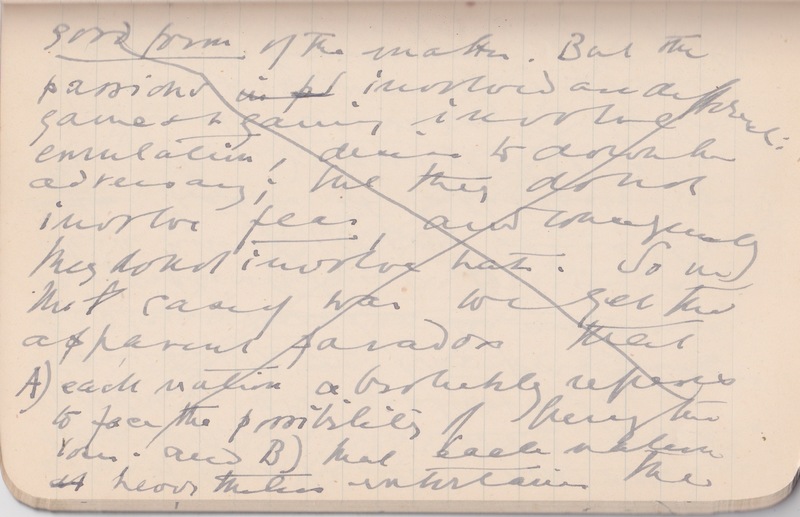 good form of the matter. But the
passions in pl involved are different:
games & gaming involve
emulation, desire to down the
adversary; but they do not
involve fear, and consequently
they do not involve hate. So in
the case of war we get the
apparent paradox that
A) each nation absolutely refuses
to face the possibility of being the
loser. and B) that each nation
nevertheless entertains the